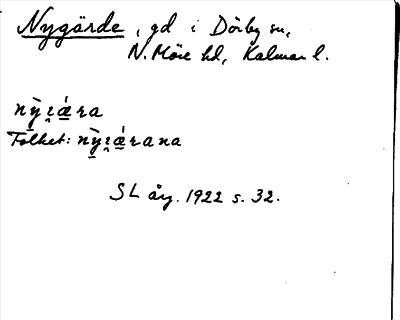 Nygärde, gd i Dörby sn,
N. Möre hd, Kalmar l.
nỳɪ̯ǽra
Folket: nỳɪ̯ǽrana
SL åg. 1922 s. 32.